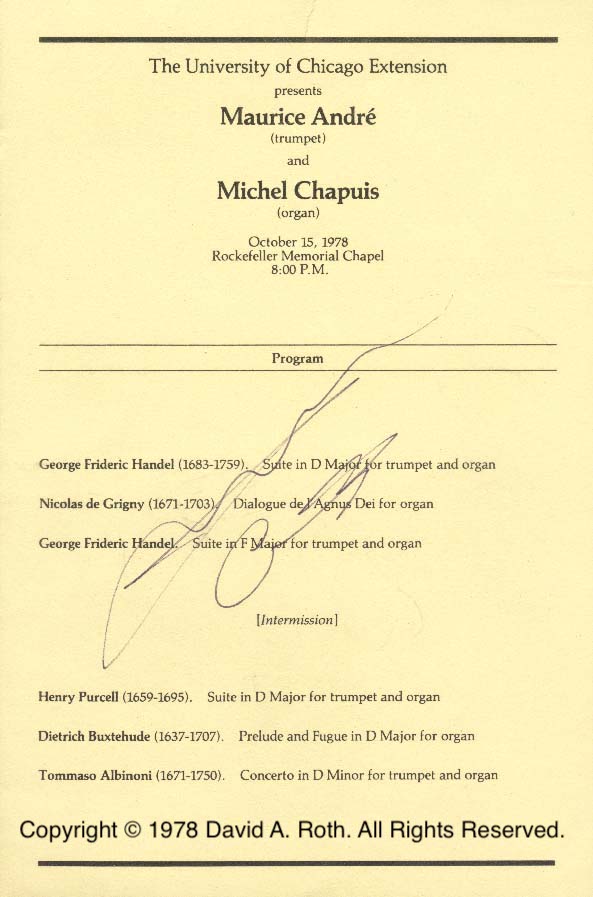 The University of Chicago Extension
presents
Maurice André
(trumpet)
and
Michel Chapuis
(organ)
October 15, 1978
Rockefeller Memorial Chapel
8:00 P.M.
Program
George Frideric Handel (1683-1759). Suite in D Major for trumpet and organ
Nicolas de Grigny (1671-1703). Dialogue de l'Agnus Dei for organ
George Frideric Handel. Suite in F Major for trumpet and organ
[Intermission]
Henry Purcell (1659-1695). Suite in D Major for trumpet and organ
Dietrich Buxtehude (1637-1707). Prelude and Fugue in D Major for organ
Tommaso Albinoni (1671-1750). Concerto in D Minor for trumpet and organ
Copyright © 1978 David A. Roth. All Rights Reserved.